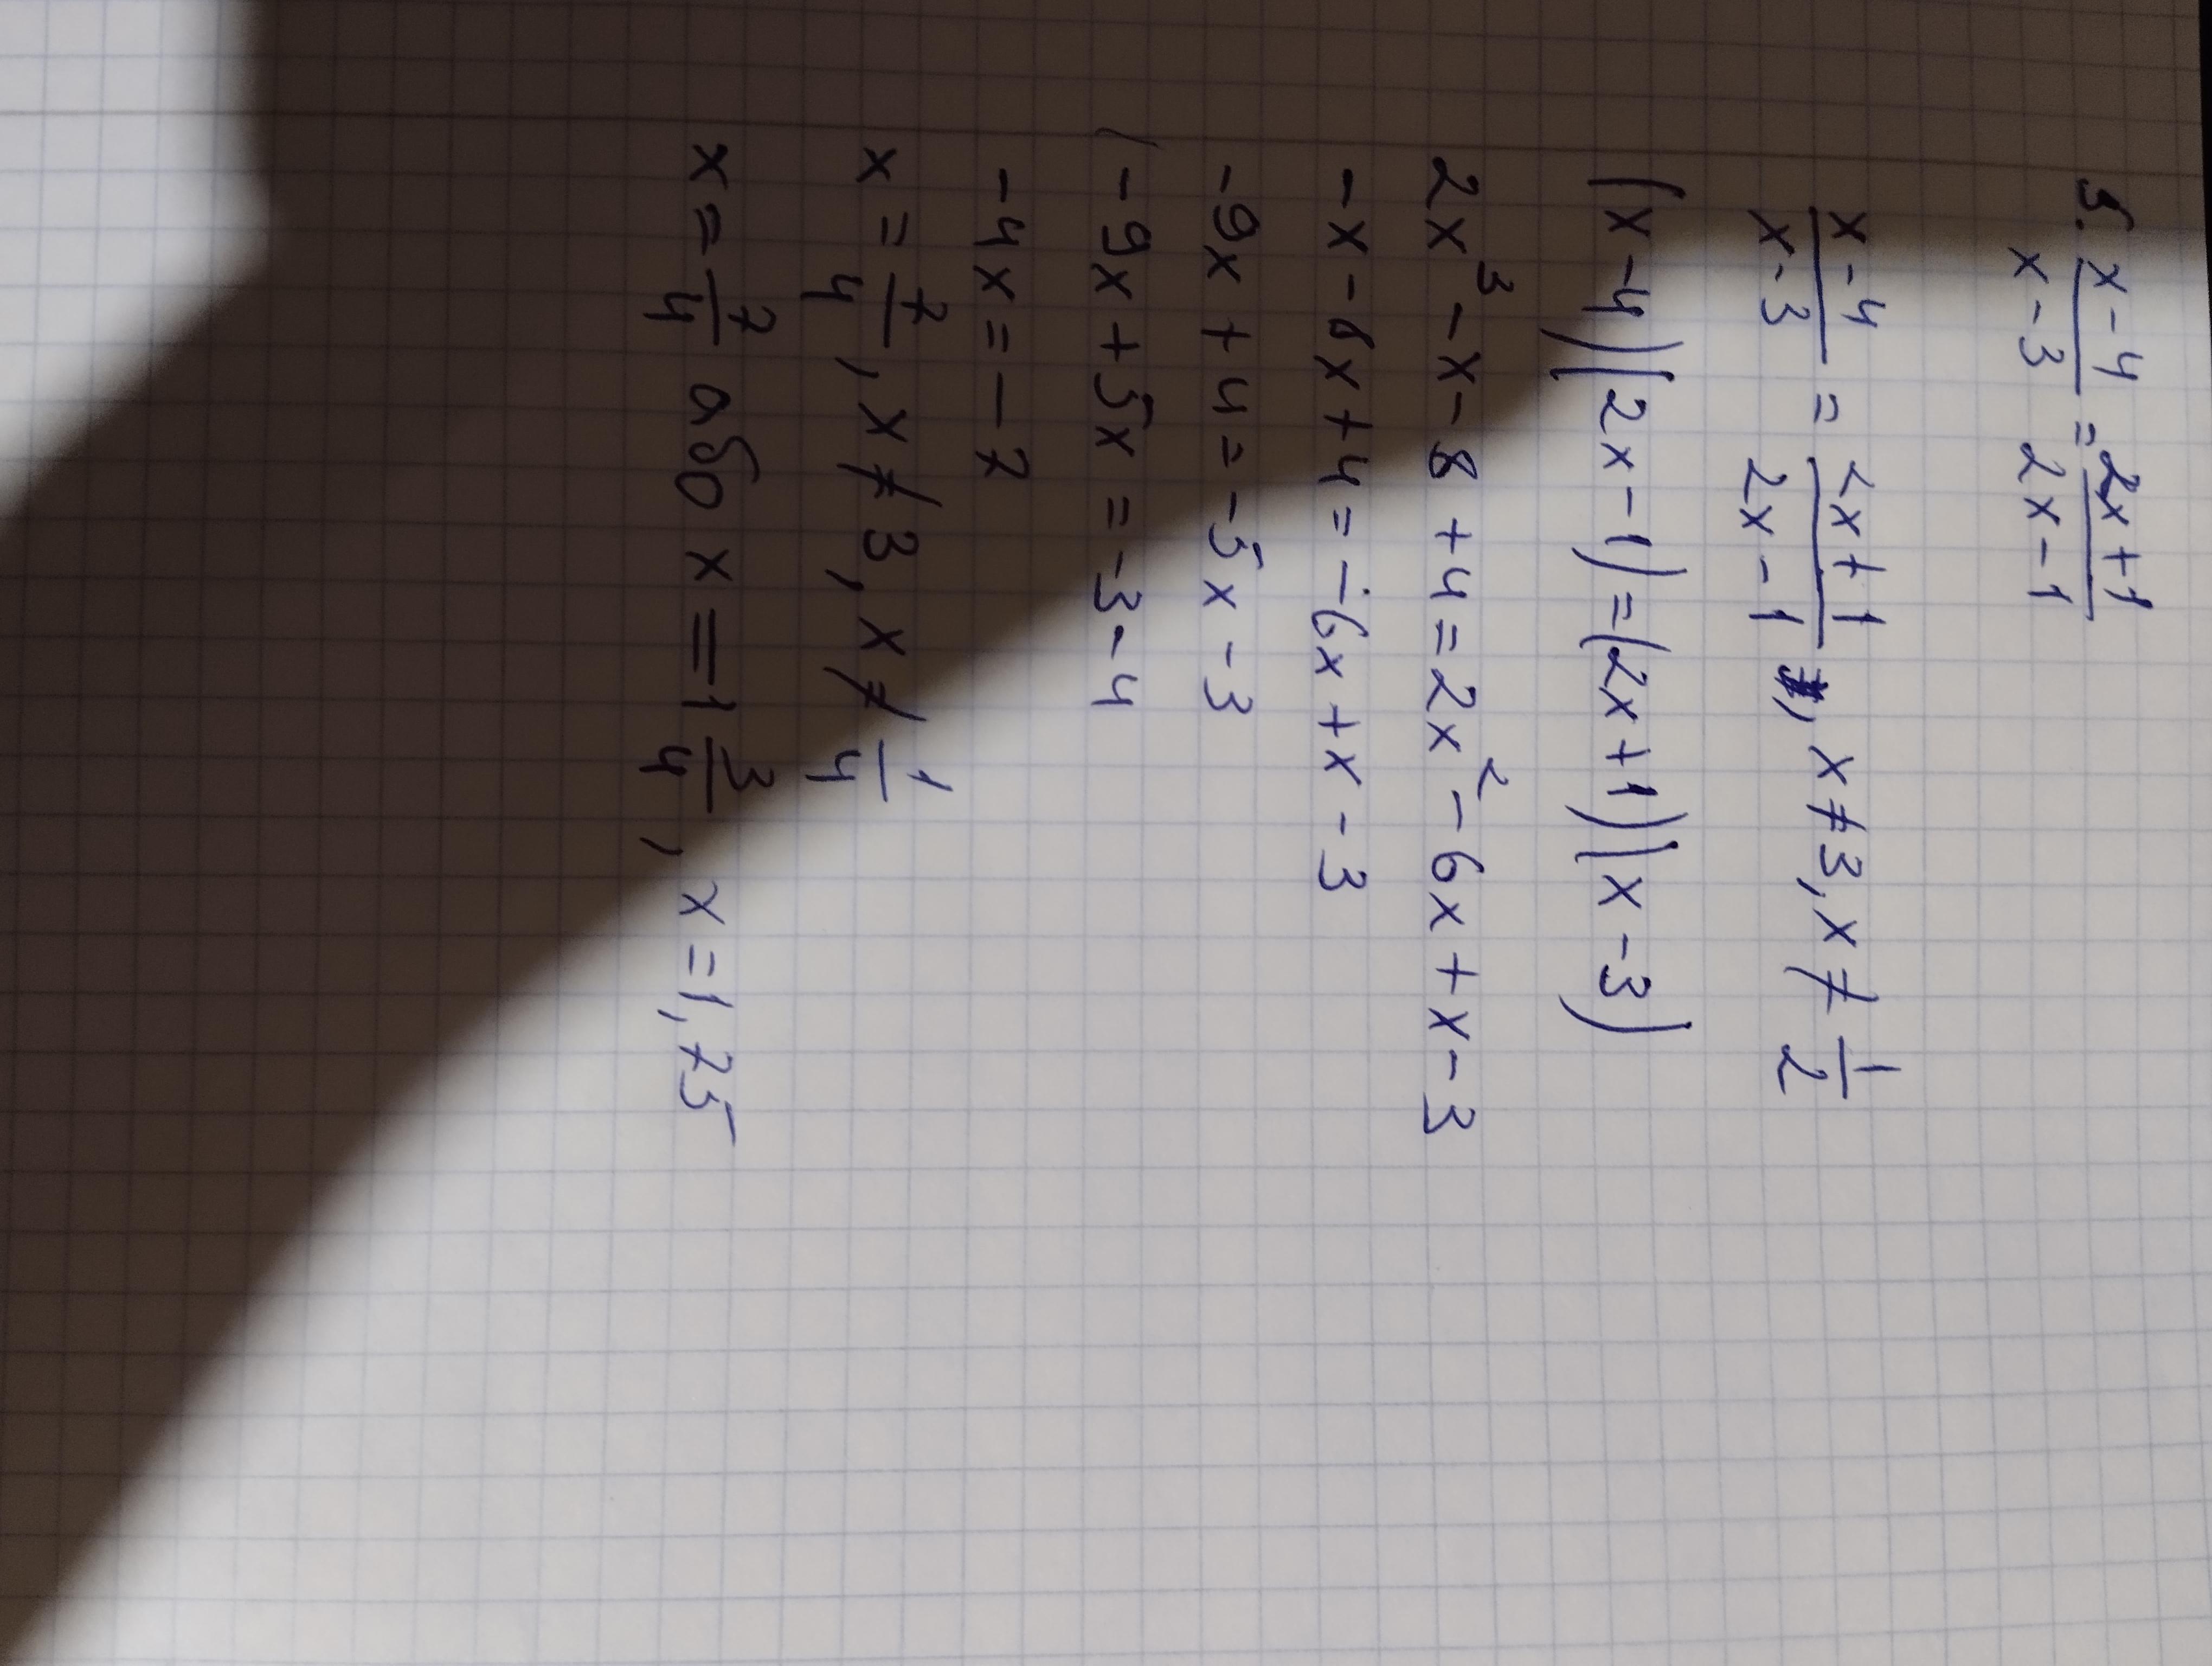 5. x-4/x-3 = 2x+1/2x-1
x-4/x-3 = 2x+1/2x-1, x≠3, x≠1/2
(x-4)(2x-1)=(2x+1)(x-3)
2x³-x-8+4=2x²-6x+x-3
-x-8x+4=-6x+x-3
-9x+4=-5x-3
-9x+5x=-3-4
-4x=-7
x=7/4, x≠3, x≠1/4
x=7/4 або x=1 3/4, x=1,75